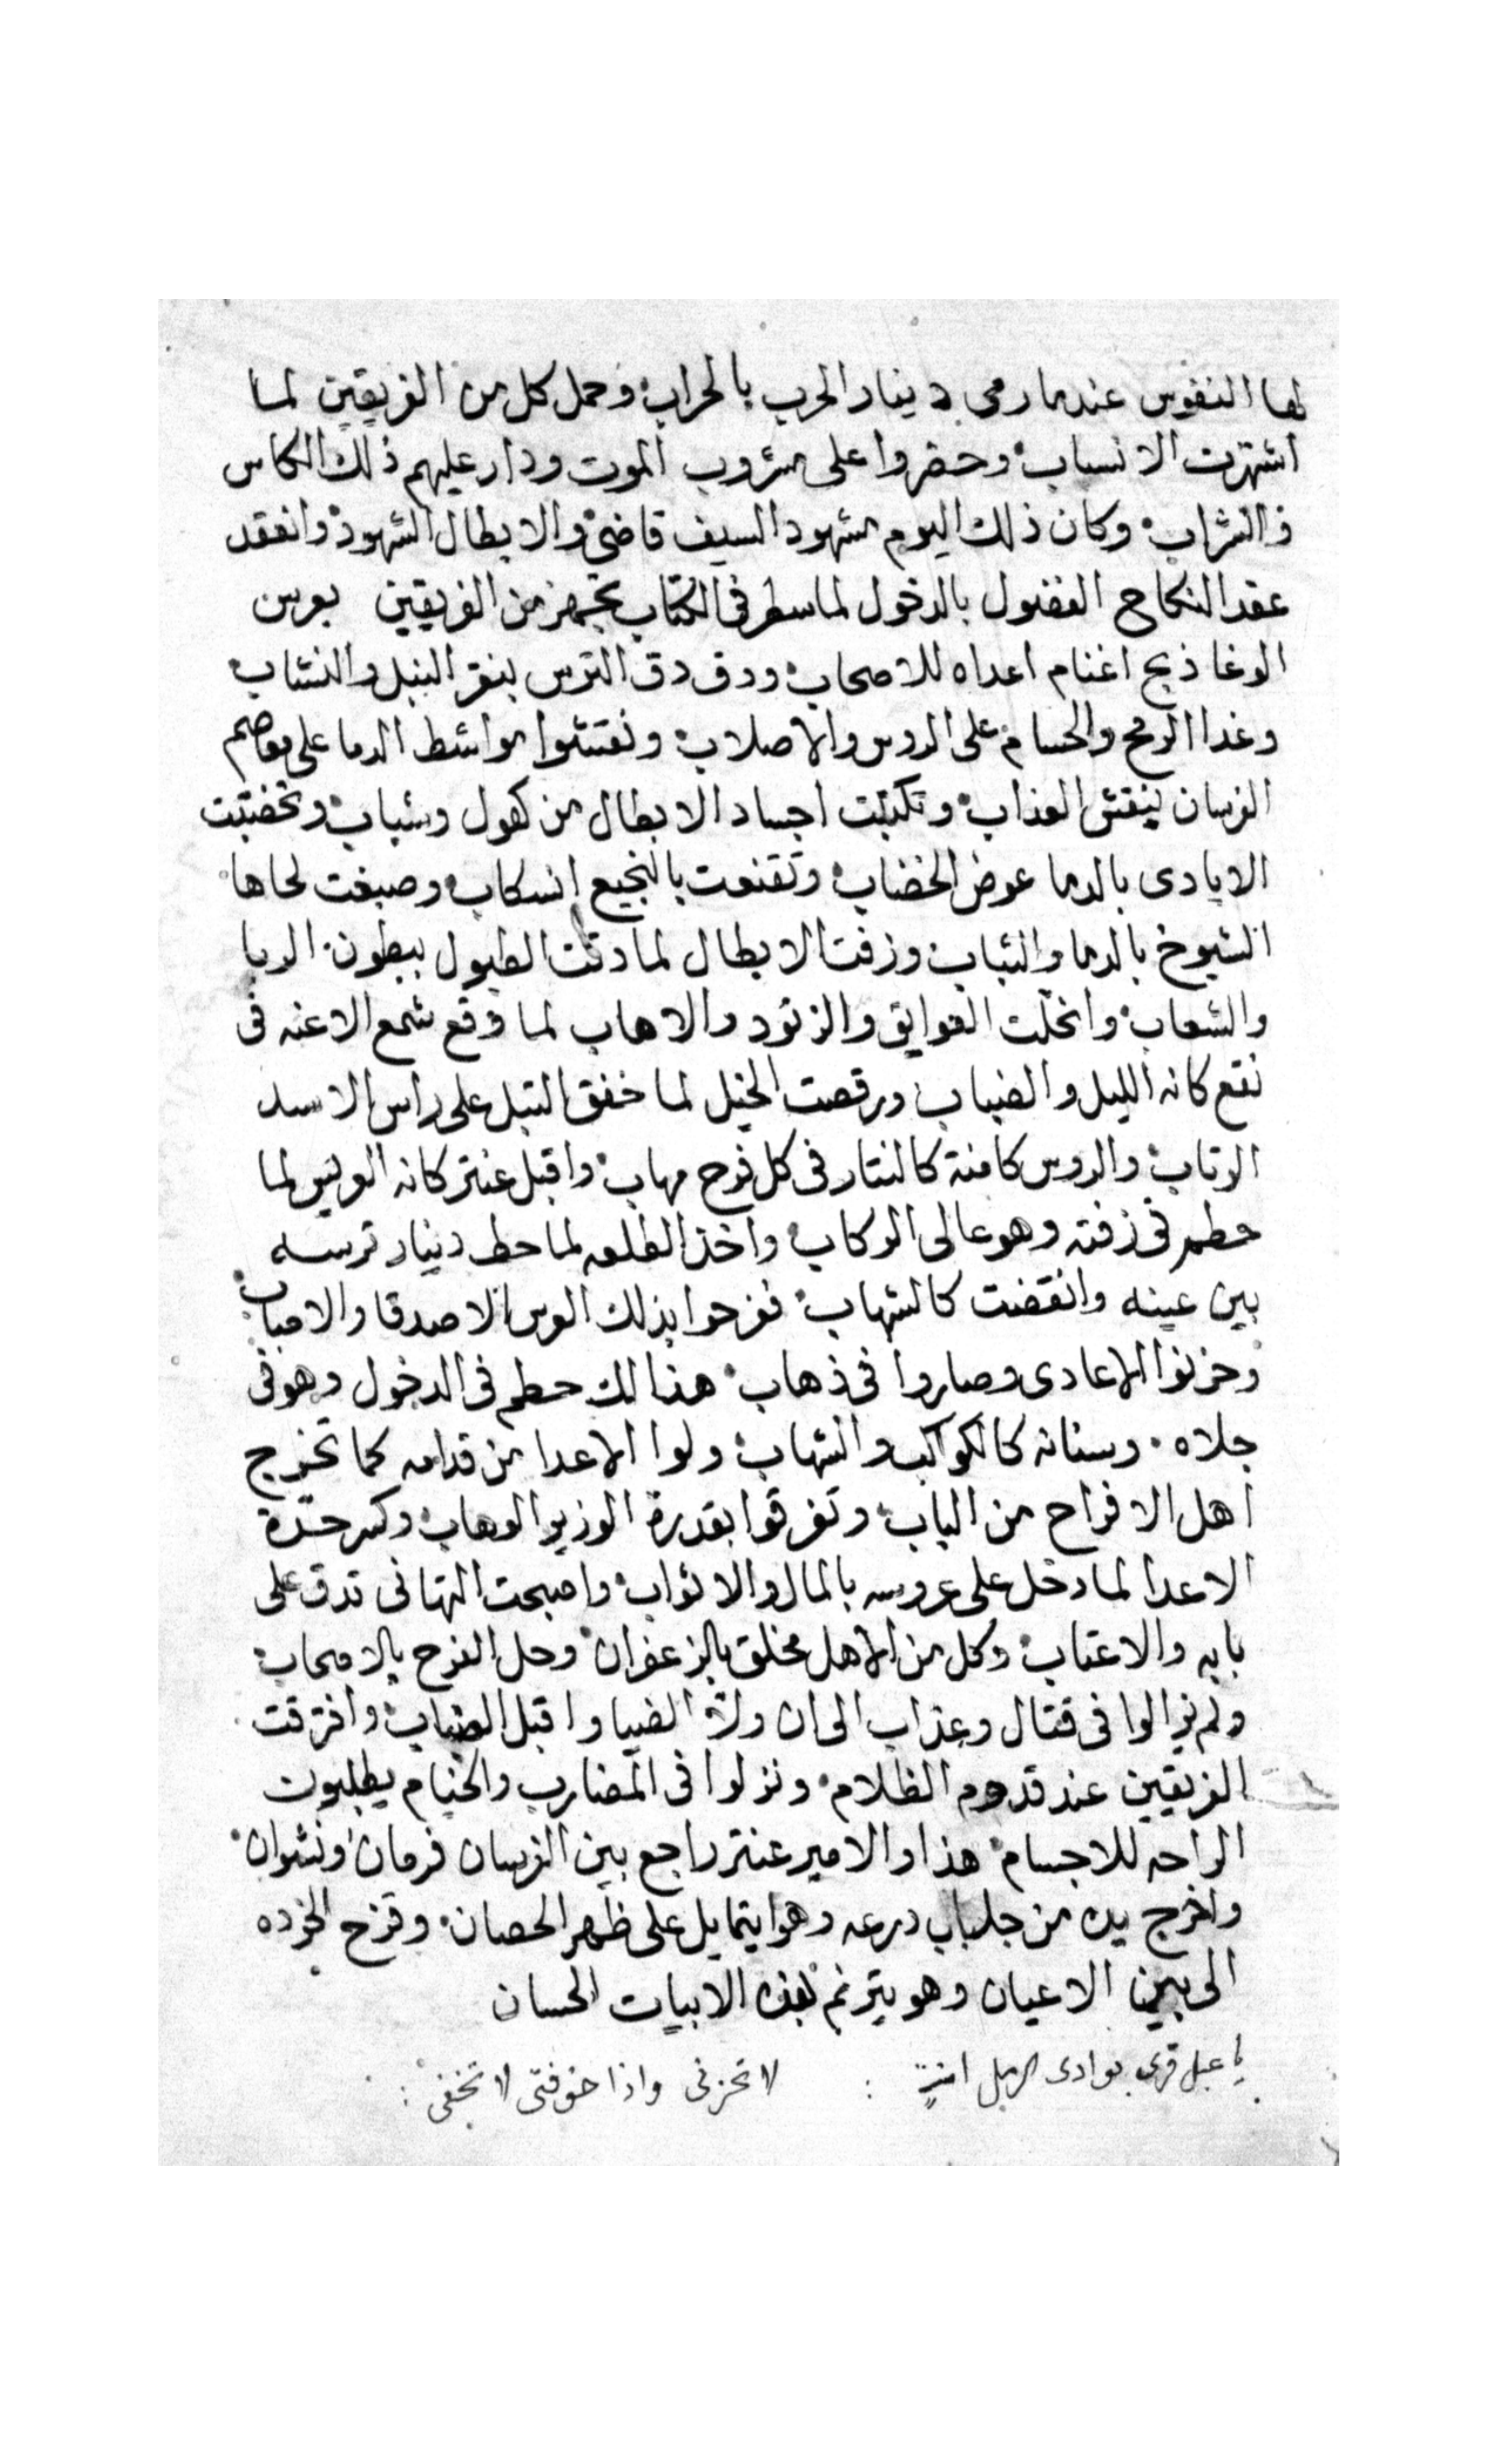 لها النفوس عندما رمى دينار الحرب بالحراب وحمل كل من الفريقين لما
اشتهرت الانساب وحضروا على مشروب الموت ودار عليهم ذلك الكاس
فالشراب وكان ذلك اليوم مشهود السيف قاضى والابطال الشهود وانعقد
عقد النكاح بالدخول لما سطر فى الكتاب تجهز من الفريقين بعرس
الوغا ذبح اغنام اعداه للاصحاب ودق دق الترس بنقر النبل والنشاب
وغدا الرمح والحسام على الروس والاصلاب ونقشوا مواشط الدما على
الفرسان بنقش العذاب اجساد الابطال من كهول وشباب وتخضبت
الايادى بالدما عوض الخضاب وتقنعت بالنجيع انسكاب وصبغت لحاها
الشيوخ بالدما والشباب وزفت الابطال لما دقت الطبول ببطون الربا
والشعاب وانحلت العوايق والزنود والاهاب لما وقع شمع الاعنه فى
نقع كانه الليل والضباب ورقصت الخيل لما خفق النبل على راس الاسد
الرقاب والروس كامنة كالنثار فى كل فرح مهاب واقبل عنتر كانه العريس لما
حطم فى زفته وهو عالى الركاب واخذ الطلعه لما حط دينار ترسه
بين عينه وانقضت كالشهاب ففرحوا بذلك العرس الاصدقا والاحباب
وحزنوا الاعادى وصاروا فى ذهاب هنالك حطم فى الدخول وهو فى
جلاه وسنانه كالكواكب والشهاب ولوا الاعدا من قدامه كما تخرج
اهل الافراح من الباب وتفرقوا بقدرة الوزير الوهاب وكسر حدة
الاعدا لما دخل على عروسه بالمال والاثواب واصبحت التهانى تدق على
بابه والاعتاب وكل من الاهل مخلق بالزعفران وحل الفرح بالاصحاب
ولم يزالوا فى قتال وعذاب الى ان ولا الضيا واقبل الضباب وافترقت
الفريقين عند قدوم الظلام ونزلوا فى المضارب والخيام يطلبون
الراحه للاجسام هذا والامير عنتر راجع بين الفرسان فرمان ونشوان
واخرج يده من جلباب درعه وهوا يتمايل على ظهر الحصان وقزح الخرده
الى بين الاعيان وهو يترنم بهذه الابيات الحسان
يا عبل قرى بوادى الرمل امنة : لا تحزنى واذا خوفتى لا تخفى :